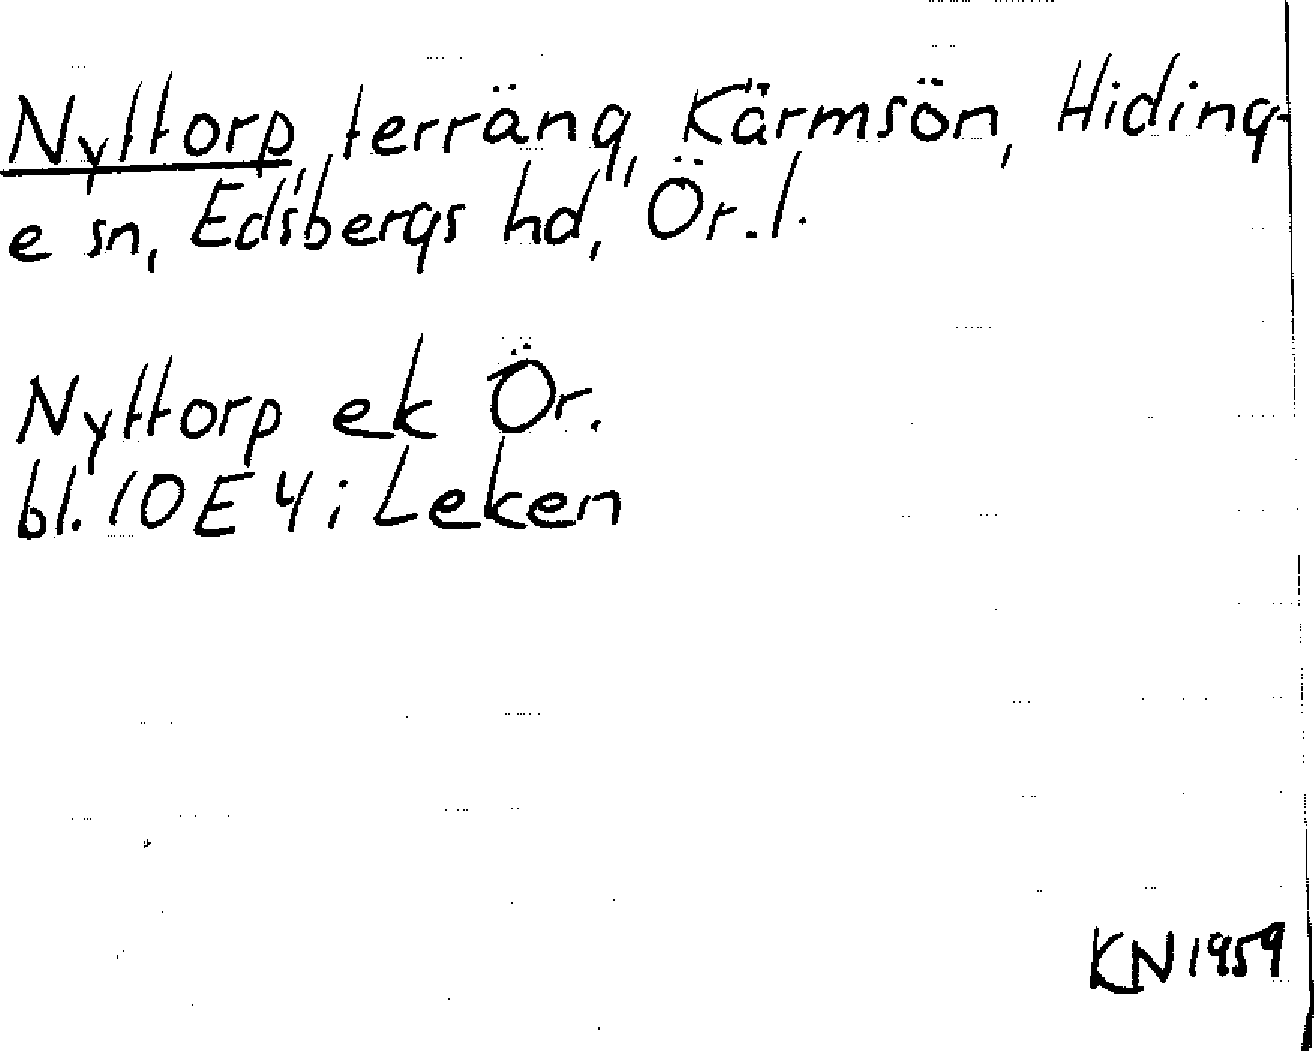 Nyttorp, terräng, Kärmsön, Hiding-
e sn, Edsbergs hd, Ör. l.
Nyttorp ek Ör.
bl. 10E 4i Leken
KN 1959